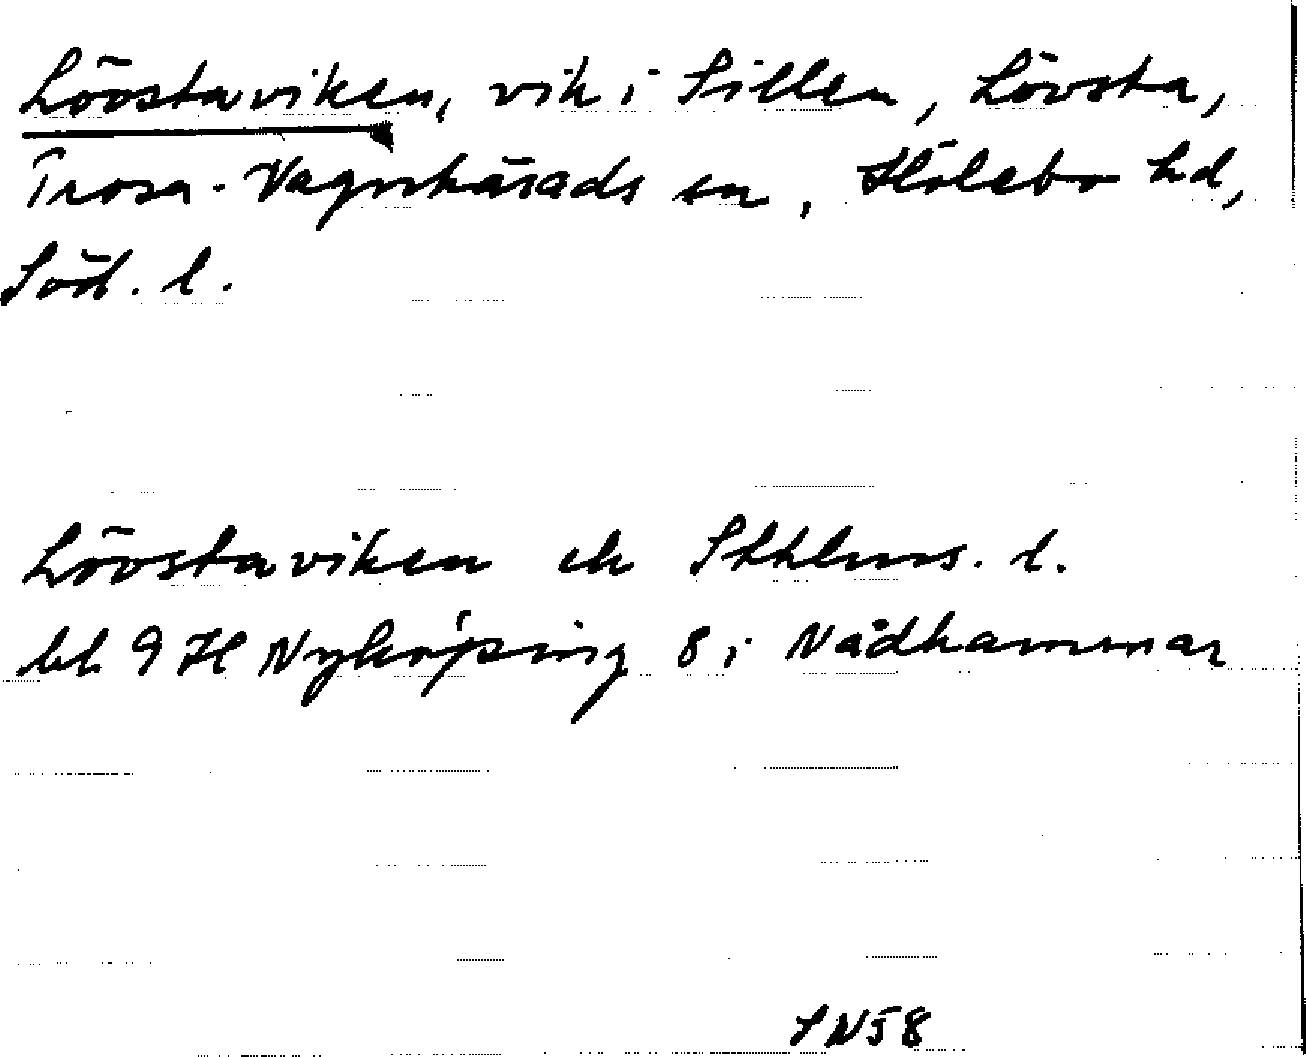 Lövstaviken, vik i Sillen, Lövsta,
Trosa-Vagnhärads sn, Hölebo hd,
Söd. l.
Lövstaviken ek Sthlms. l.
bl. 9 H Nyköping 8 i Nådhammar
SN58